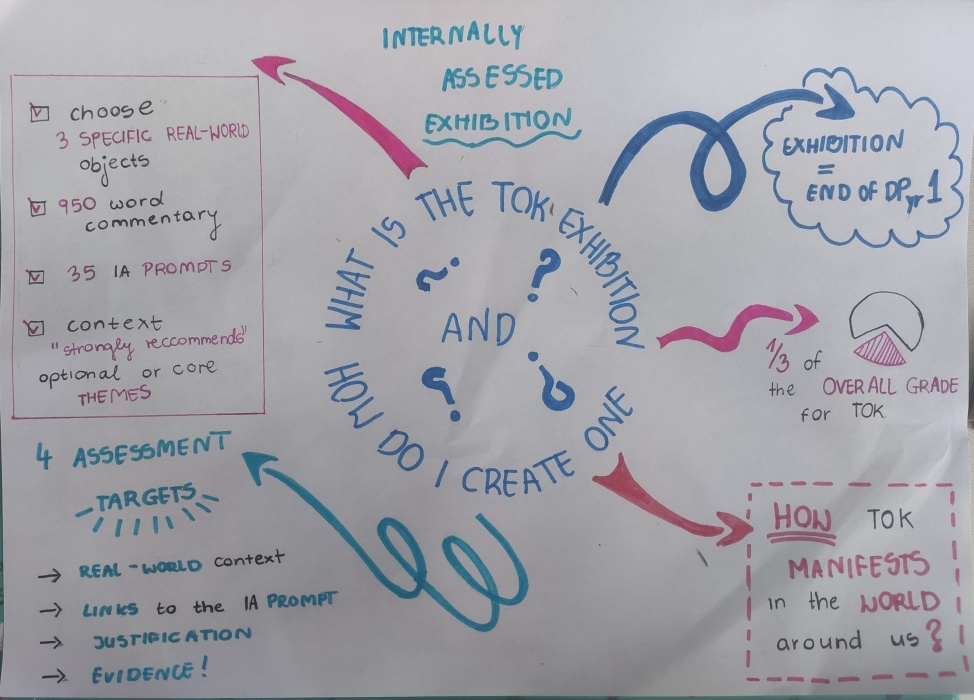 INTERNALLY
ASSESSED
EXHIBITION
choose
3 SPECIFIC REAL-WORLD
objects
950 word
commentary
35 IA PROMPTS
context
"strongly reccommends"
optional or core
THEMES
EXHIBITION
=
END OF DPyr1
WHAT IS THE TOK EXHIBITION
? ?
AND
? ?
HOW DO I CREATE ONE
1/3 of
the OVERALL GRADE
for TOK
4 ASSESSMENT
TARGETS
→ REAL-WORLD context
→ LINKS to the IA PROMPT
→ JUSTIFICATION
→ EVIDENCE!
HOW TOK
MANIFESTS
in the WORLD
around us?